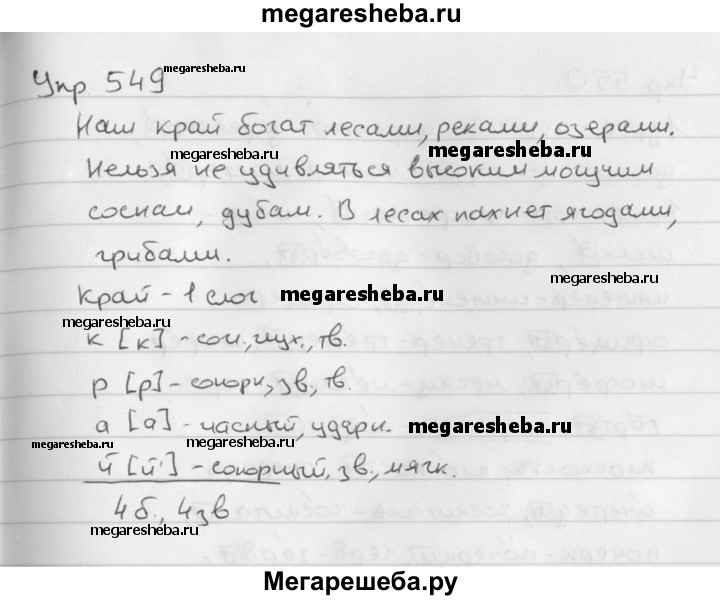 megaresheba.ru
Упр 549 megaresheba.ru
Наш край богат лесами, реками, озерами.
megaresheba.ru megaresheba.ru
Нельзя не удивляться высоким могучим
соснам, дубам. В лесах пахнет ягодами,
грибами. megaresheba.ru
край - 1 слог megaresheba.ru
megaresheba.ru
к [к] - согл., глух., тв.
р [р] - сонорн, зв, тв.
megaresheba.ru
а [а] - гласный, ударн. megaresheba.ru
megaresheba.ru megaresheba.ru
й [й'] - сонорный, зв., мягк.
4 б., 4 зв megaresheba.ru
megaresheba.ru
Мегарешеба.ру